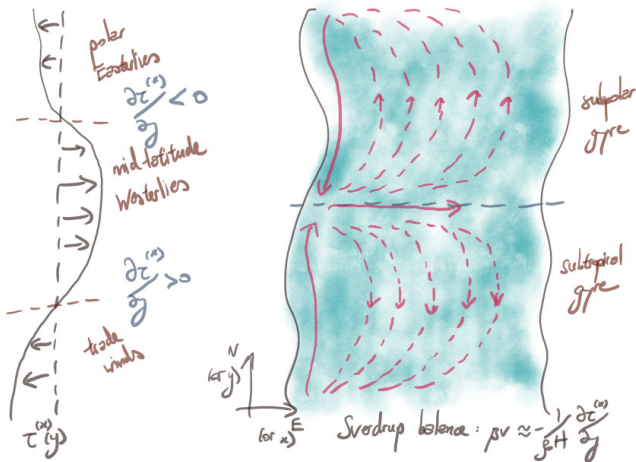 polar
Easterlies
∂τ⁽ˣ⁾/∂y < 0
mid-latitude
Westerlies
∂τ⁽ˣ⁾/∂y > 0
trade
winds
τ⁽ˣ⁾(y)
subpolar
gyre
subtropical
gyre
N
(or y)
E
(or x)
Sverdrup balance : βv ≈ - 1/ρ₀H ∂τ⁽ˣ⁾/∂y